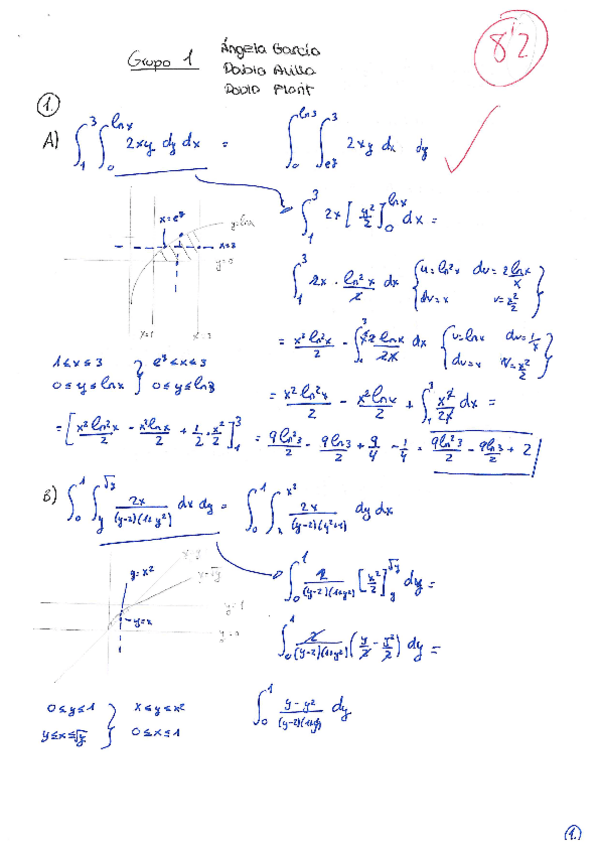 Grupo 1
Ángela García
8'2
1.
A) ∫₁³ ∫₀^{lnx} 2xy dy dx = ∫₀^{ln3} ∫_{e^y}^3 2xy dx dy
∫₁³ 2x [y²/2]₀^{lnx} dx =
x=e^y
y=lnx
x=3
y=0
x=1
x=3
∫₁³ 2x · ln²x/2 dx {u=ln²x du=2lnx/x
dv=x v=x²/2}
= x² ln²x/2 - ∫₁³ x² 2lnx/2x dx {u=lnx du=1/x
dv=x v=x²/2}
1≤x≤3 } e^y≤x≤3
0≤y≤lnx } 0≤y≤ln3
= x² ln²x/2 - x² lnx/2 + ∫₁³ x²/2x dx =
= [x² ln²x/2 - x² lnx/2 + 1/2 · x²/2]₁³ = 9ln²3/2 - 9ln3/2 + 9/4 - 1/4 = 9ln²3/2 - 9ln3/2 + 2
B) ∫₀¹ ∫_y^{√y} 2x/((y-2)(1+y²)) dx dy = ∫₀¹ ∫_x^{x²} 2x/((y-2)(y²+1)) dy dx
y=x²
x=y
x=√y
y=1
y=x
y=0
∫₀¹ 2/((y-2)(1+y²)) [x²/2]_y^{√y} dy =
∫₀¹ 2/((y-2)(1+y²)) (y/2 - y²/2) dy =
0≤y≤1 } x≤y≤x²
y≤x≤√y } 0≤x≤1
∫₀¹ y-y²/((y-2)(1+y²)) dy
1.